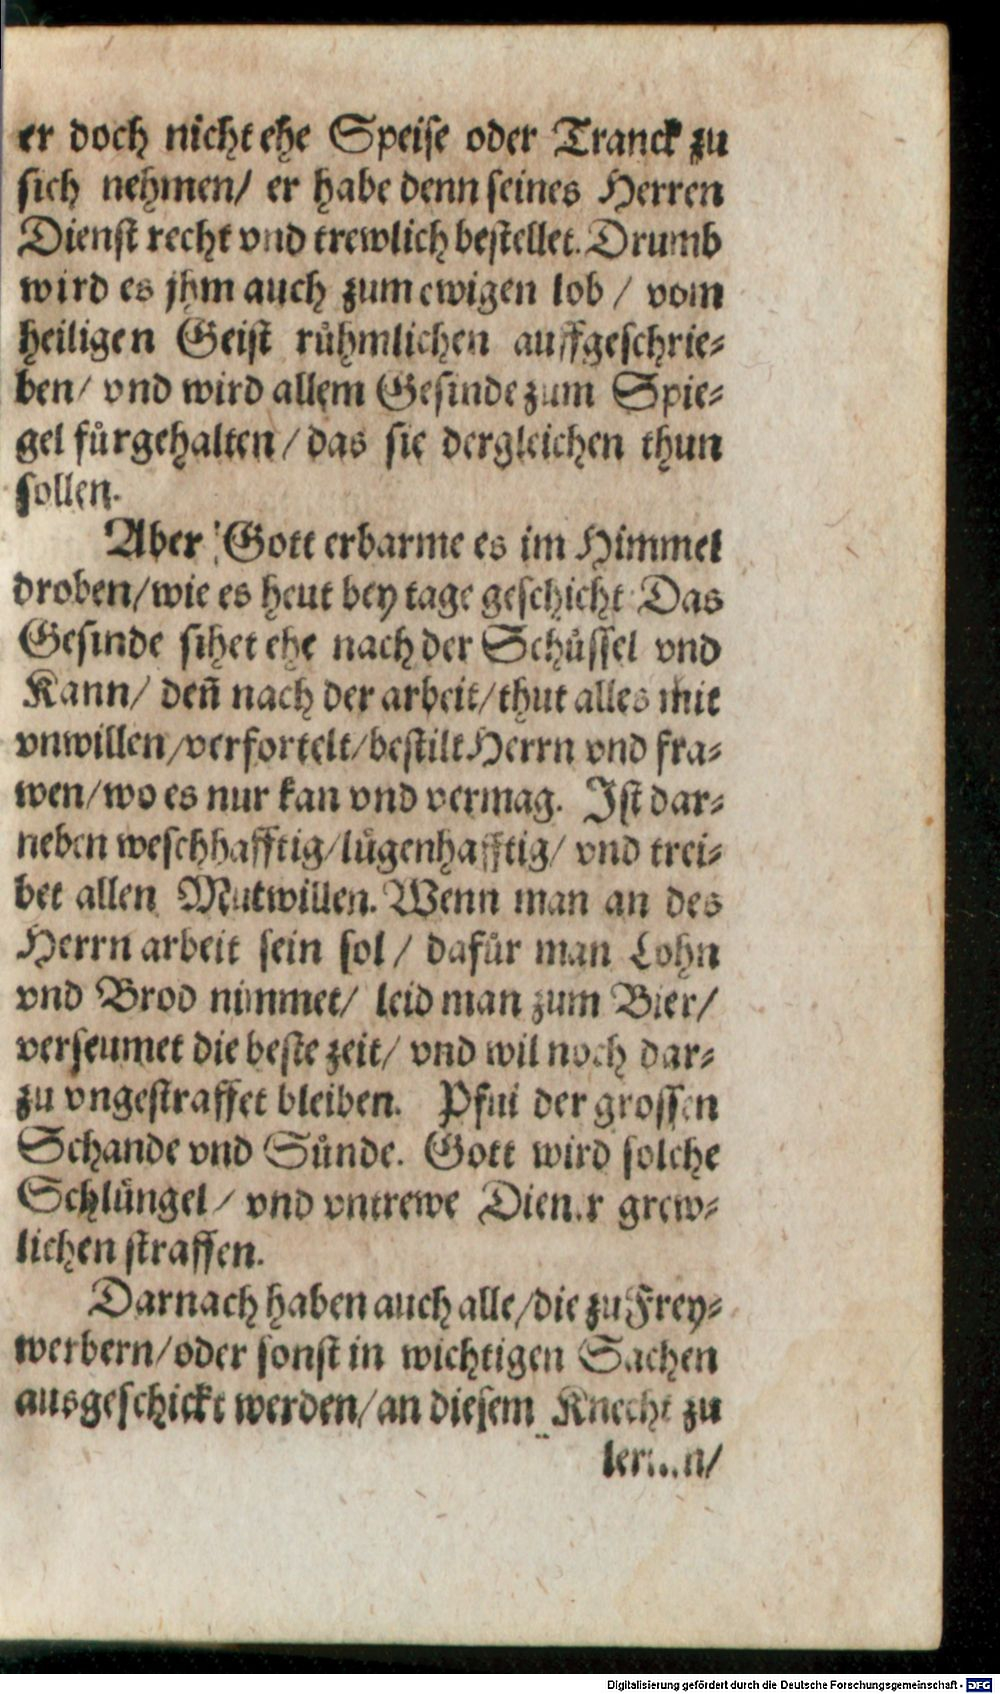 er doch nicht ehe Speise oder Tranck zu
sich nehmen/ er habe denn seines Herren
Dienst recht vnd trewlich bestellet. Drumb
wird es jhm auch zum ewigen lob / vom
heiligen Geist rühmlichen auffgeschrie-
ben/ vnd wird allem Gesinde zum Spie-
gel fürgehalten / das sie dergleichen thun
sollen.
Aber Gott erbarme es im Himmel
droben/wie es heut bey tage geschicht Das
Gesinde sihet ehe nach der Schüssel vnd
Kann/ deñ nach der arbeit/thut alles mit
vnwillen/verfortelt/bestilt Herrn vnd fra-
wen/wo es nur kan vnd vermag. Ist dar-
neben weschhafftig/lügenhafftig/ vnd trei-
bet allen Mutwillen. Wenn man an des
Herrn arbeit sein sol / dafür man Lohn
vnd Brod nimmet/ leid man zum Bier/
verseumet die beste zeit/ vnd wil noch dar-
zu vngestraffet bleiben. Pfui der grossen
Schande vnd Sünde. Gott wird solche
Schlüngel / vnd vntrewe Diener grew-
lichen straffen.
Darnach haben auch alle/die zu Frey-
werbern/oder sonst in wichtigen Sachen
ausgeschickt werden/an diesem Knecht zu
lernen/
Digitalisierung gefördert durch die Deutsche Forschungsgemeinschaft - DFG